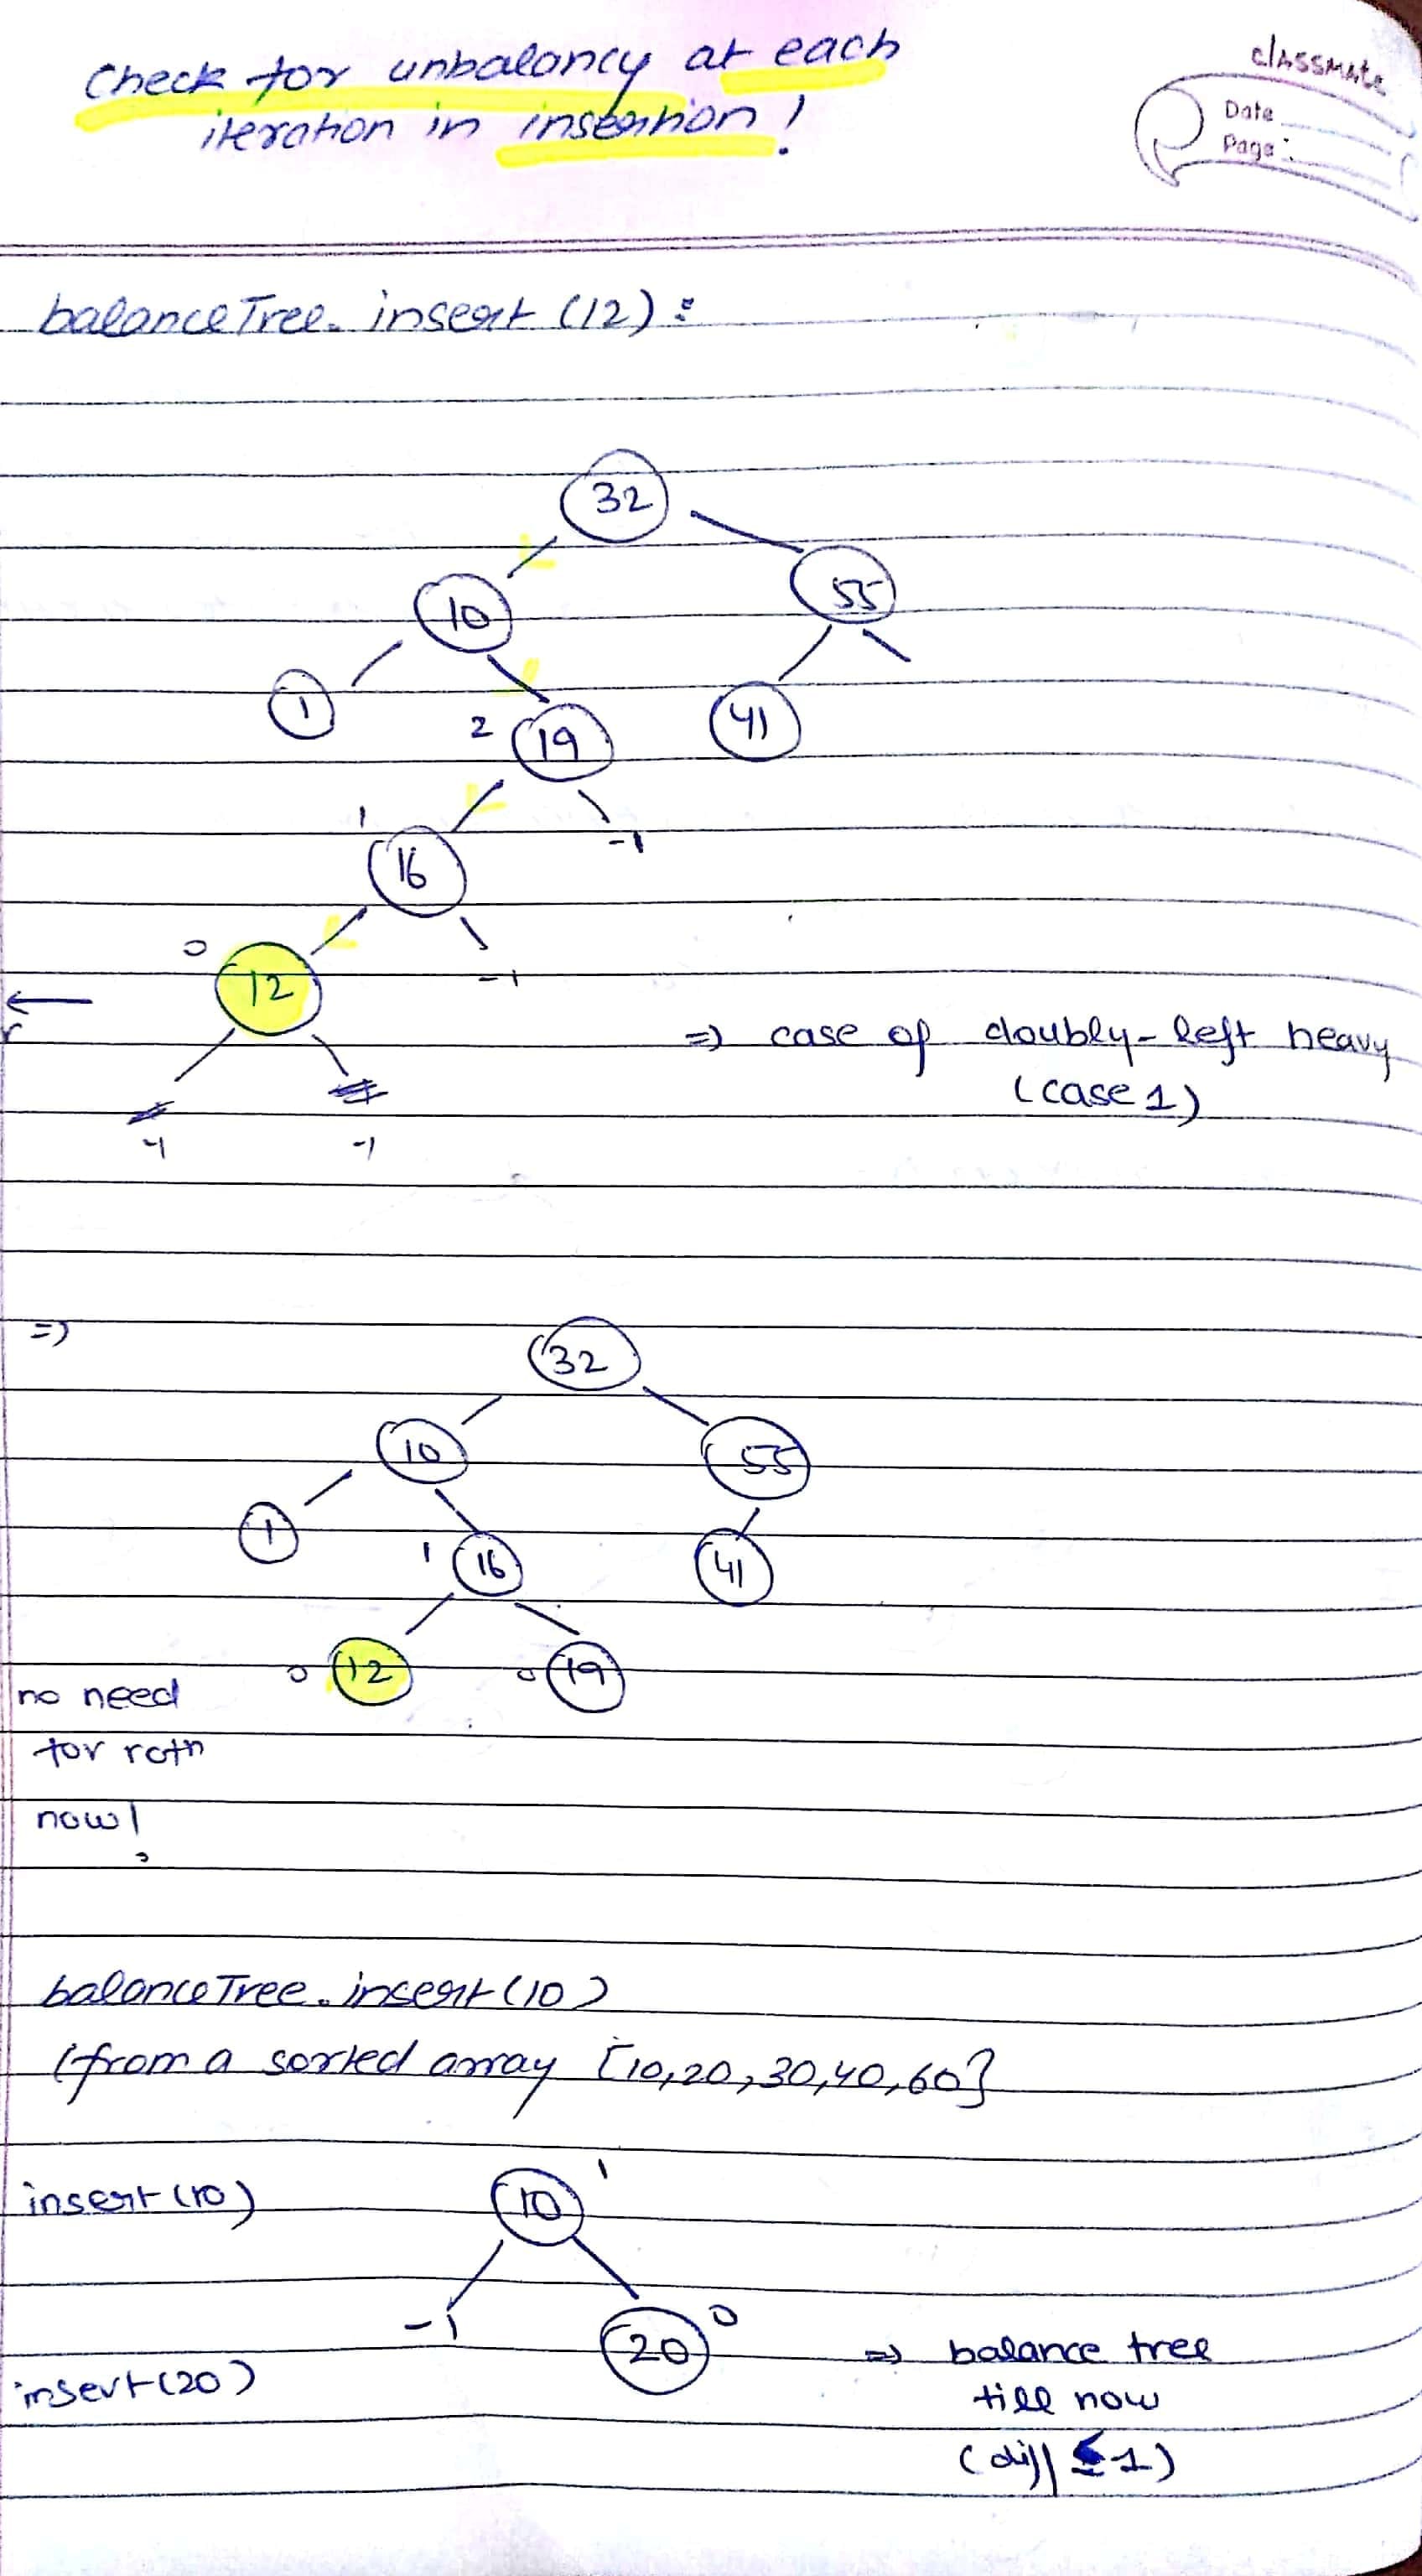 Check for unbalancy at each
iteration in insertion!
classmate
Date
Page
balanceTree.insert(12):
32
10
55
1
2
19
41
1
16
-1
0
12
-1
=> case of doubly-left heavy
(case 1)
-1
-1
=>
32
10
55
1
1
16
41
0
12
0
19
no need
for rotn
now!
balanceTree.insert(10)
(from a sorted array [10,20,30,40,60}
insert(10)
10
1
-1
20
0
insert(20)
=> balance tree
till now
(diff ≤ 1)